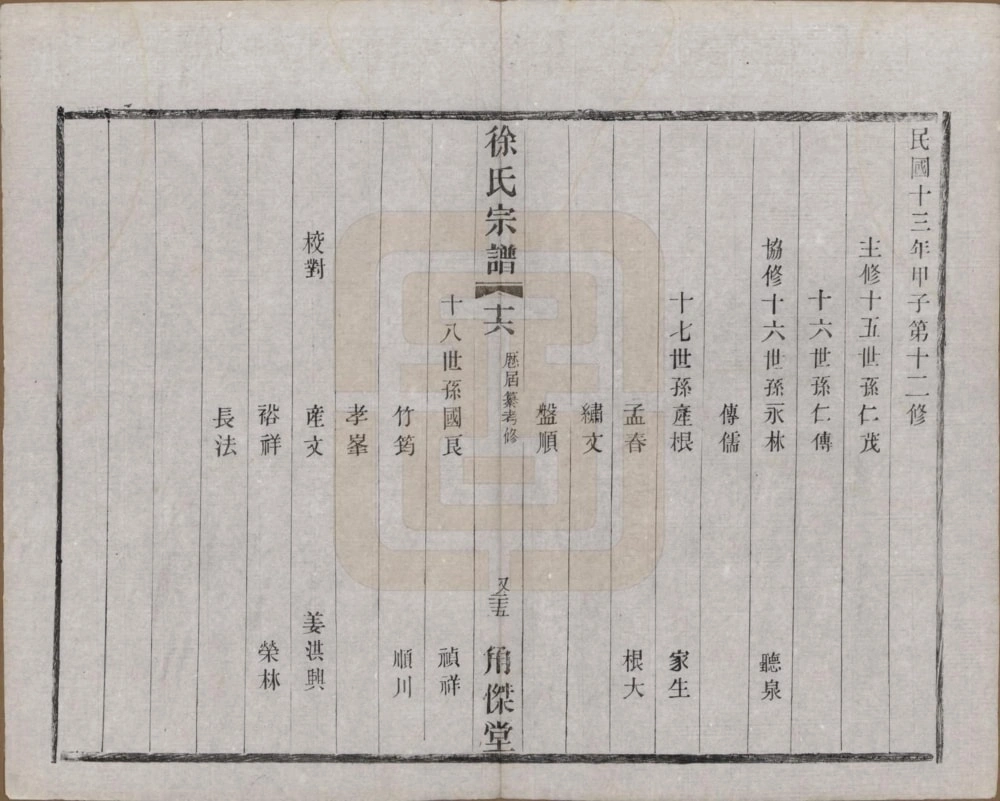 民國十三年甲子第十二修
主修十五世孫仁茂
十六世孫仁傳
協修十六世孫永林 聽泉
傳儒
十七世孫產根 家生
孟春 根大
繡文
盤順
徐氏宗譜 十六 歷屆纂考修 又三十五 角傑堂
十八世孫國良 禎祥
竹筠 順川
孝峯
校對 產文 姜洪興
裕祥 榮林
長法